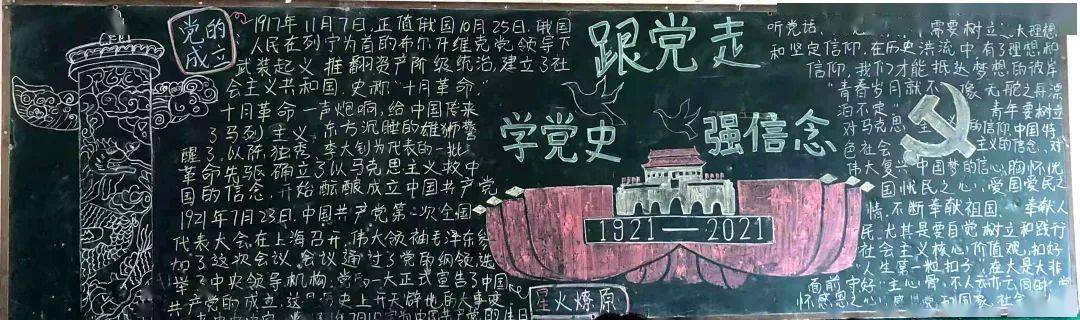 党的
成立
1917年11月7日,正值俄国10月25日,俄国
人民在列宁为首的布尔什维克党领导下
武装起义,推翻资产阶级统治,建立了社
会主义共和国,史称"十月革命".
十月革命一声炮响,给中国传来
了马列主义,东方沉睡的雄狮警
醒了,以陈独秀、李大钊为代表的一批
革命先驱,确立了以马克思主义救中
国的信念,开始酝酿成立中国共产党
1921年7月23日,中国共产党第一次全国
代表大会在上海召开,伟大领袖毛泽东参
加了这次会议,会议通过了党的纲领,选
举了中央领导机构,党的一大正式宣告了中国
共产党的成立,这是历史上开天辟地的大事变
跟党走
学党史
强信念
1921—2021
星火燎原
听党话,需要树立大理想
和坚定信仰,在历史洪流中,有了理想和
信仰,我们才能抵达梦想的彼岸
"青春岁月就不像无舵之舟漂
泊不定"青年要树立
对马克思主义的信仰,中国特
色社会主义的信念,对
伟大复兴中国梦的信心,胸怀忧
国忧民之心,爱国爱民之
情,不断奉献祖国、奉献人
民,尤其是要自觉树立和践行
社会主义核心价值观,扣好
"人生第一粒扣子",在大是大非
面前守好"主心骨",不人云亦云,同时
怀感恩之心,党和国家、社会